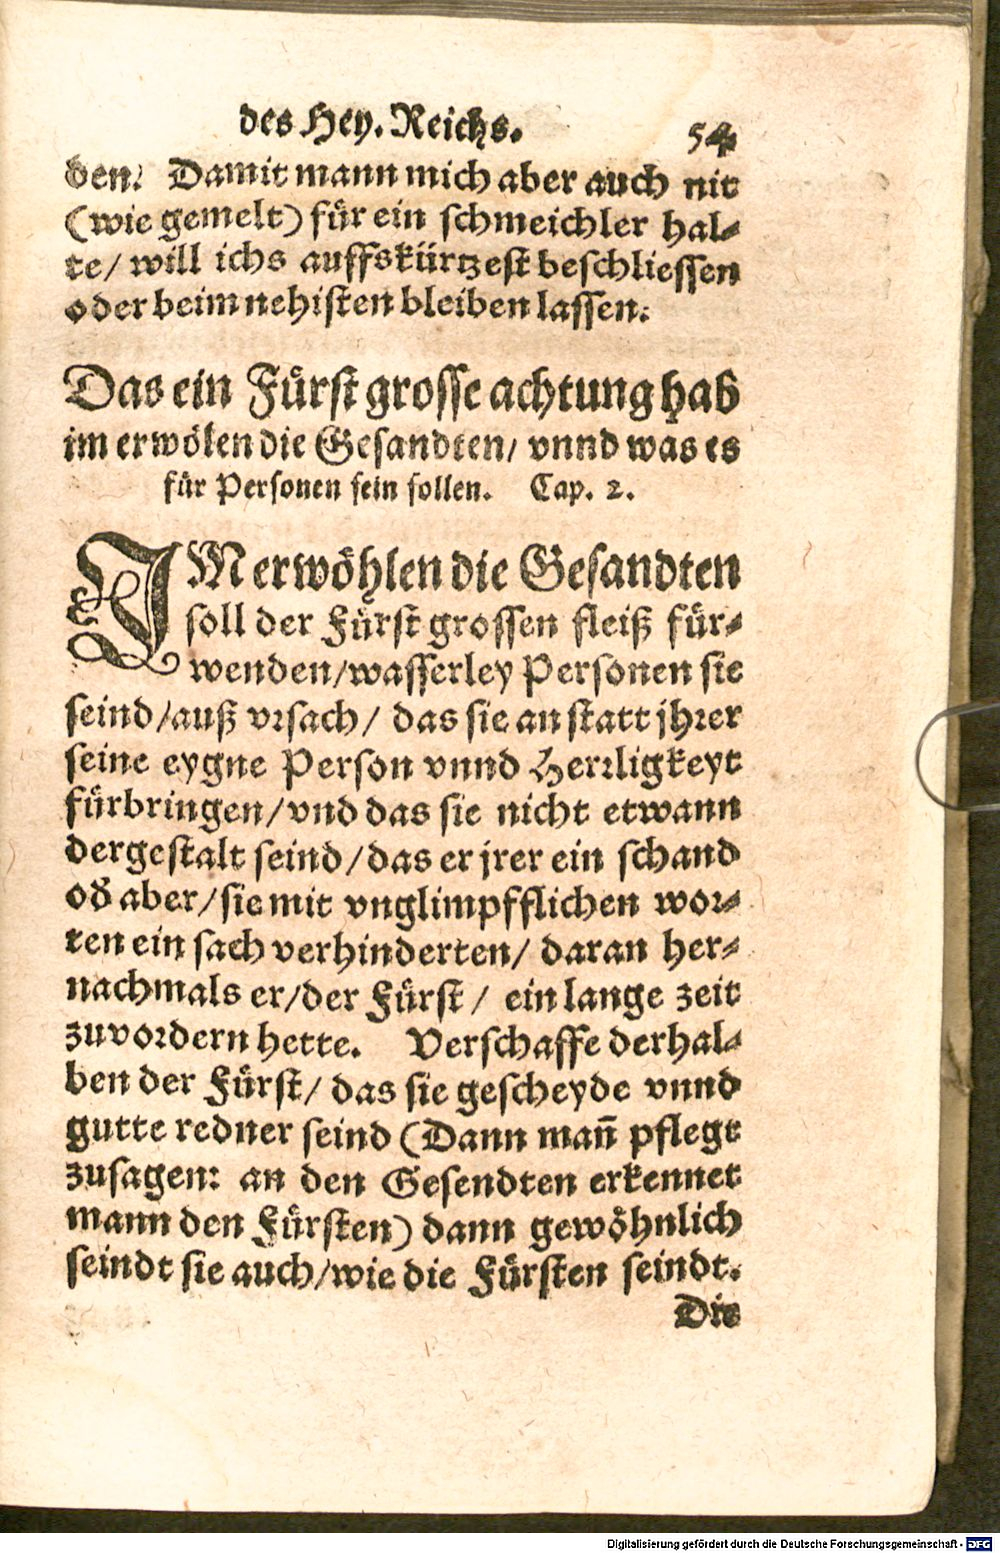 des Hey. Reichs. 54
den. Damit mann mich aber auch nit
(wie gemelt) für ein schmeichler hal⸗
te/ will ichs auffskürtzest beschliessen
oder beim nehisten bleiben lassen.
Das ein Fürst grosse achtung hab
im erwölen die Gesandten/ vnnd was es
für Personen sein sollen. Cap. 2.
IM erwöhlen die Gesandten
soll der Fürst grossen fleiß für⸗
wenden/wasserley Personen sie
seind/auß vrsach/ das sie an statt jhrer
seine eygne Person vnnd Herrligkeyt
fürbringen/vnd das sie nicht etwann
dergestalt seind/das er jrer ein schand
od̕ aber/sie mit vnglimpfflichen wor⸗
ten ein sach verhinderten/ daran her⸗
nachmals er/der Fürst/ ein lange zeit
zuvordern hette. Verschaffe derhal⸗
ben der Fürst/ das sie gescheyde vnnd
gutte redner seind (Dann mañ pflegt
zusagen: an den Gesendten erkennet
mann den Fürsten) dann gewöhnlich
seindt sie auch/wie die Fürsten seindt.
Die
Digitalisierung gefördert durch die Deutsche Forschungsgemeinschaft - DFG